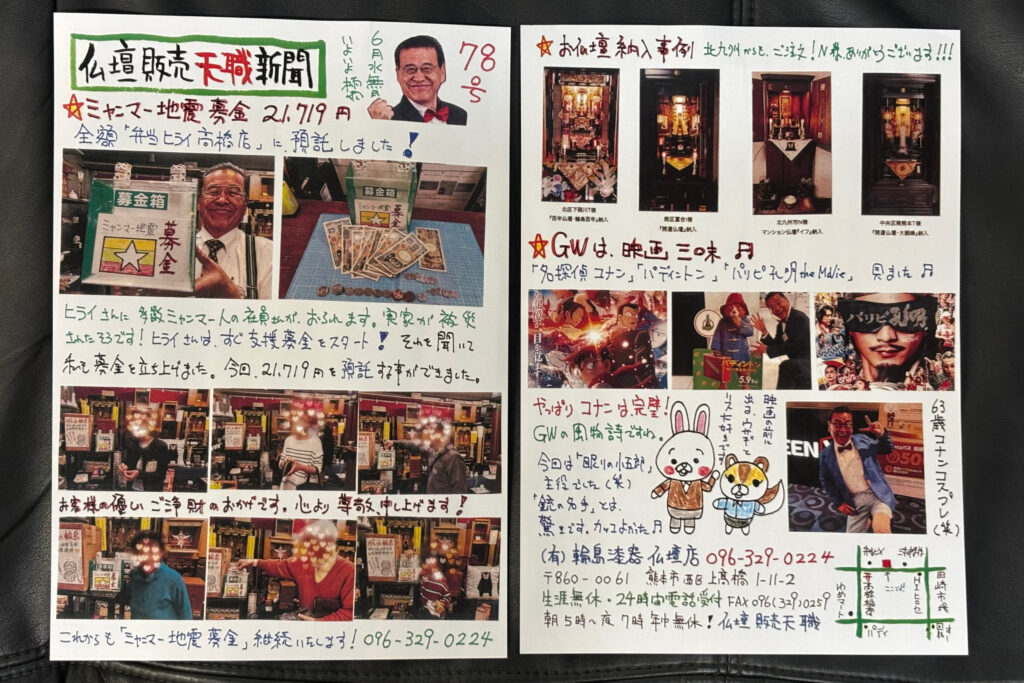 仏壇販売天職新聞
6月水無月
いよいよ
78号
★ミャンマー地震募金 21,719円
全額「弁当ヒライ高橋店」に、預託しました!
募金箱
ミャンマー地震
募金
募金箱
ミャンマー地震
募金
ヒライさんに多数ミャンマー人の社員さんが、おられます。実家が被災
されたそうです!ヒライさんは、すぐ支援募金をスタート!それを聞いて
私も募金を立ち上げました。今回、21,719円を預託する事ができました。
お客様の優しいご浄財のおかげです。心より尊敬申し上げます!
これからも「ミャンマー地震募金」継続いたします!096-329-0224
★お仏壇納入事例 北九州からも、ご注文!N様ありがとうございます!!!
北区下硯川T様
『百年仏壇・輪島百年』納入
南区富合I様
『開運仏壇』納入
北九州市N様
マンション仏壇『イフ』納入
中央区南熊本T様
『開運仏壇・大銀河』納入
★GWは、映画三昧♬
「名探偵コナン」「パディントン」「パリピ孔明the Movie」見ました♬
パディントン
5.9 Fri
パリピ孔明
やっぱりコナンは、完璧!
GWの風物詩ですね。
今回は「眠りの小五郎」
主役でした(笑)
「銃の名手」とは、
驚きです。カッコよかった♬
映画の前に
出る、ウサギと
リス大好きです
63歳コナンコスプレ(笑)
(有)輪島漆器仏壇店 096-329-0224
〒860-0061 熊本市西区上高橋1-11-2
生涯無休・24時間電話受付 FAX096(329)0259
朝5時~夜7時年中無休!仏壇販売天職
ここ!
田崎市場